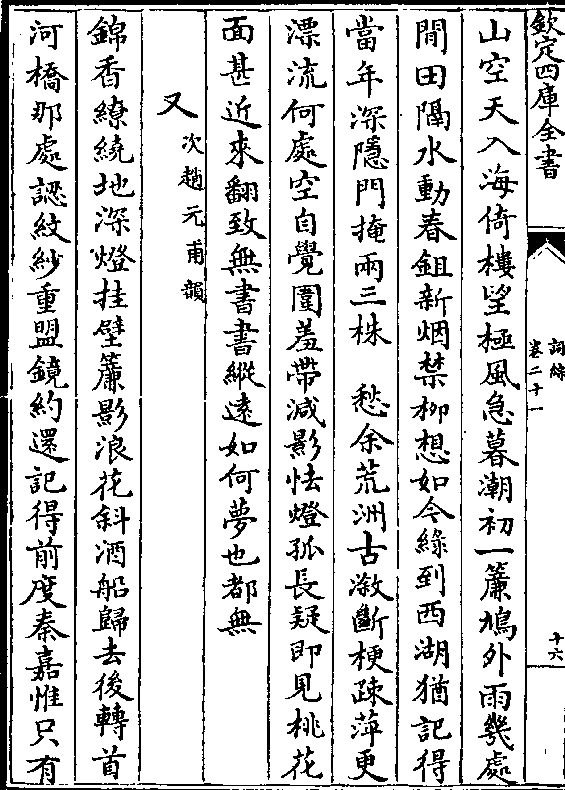 欽定四庫全書
詞綜
卷二十一
十六
山空天入海倚樓望極風急暮潮初一簾鳩外雨幾處
閒田隔水動春鉏新烟禁柳想如今綠到西湖猶記得
當年深隱門掩兩三株　愁余荒洲古漵斷梗疎萍更
漂流何處空自覺圍羞帶減影怯燈孤長疑即見桃花
面甚近來翻致無書書縱遠如何夢也都無
又次趙元甫韻
錦香繚繞地深燈挂壁簾影浪花斜酒船歸去後轉首
河橋那處認紋紗重盟鏡約還記得前度秦嘉惟只有